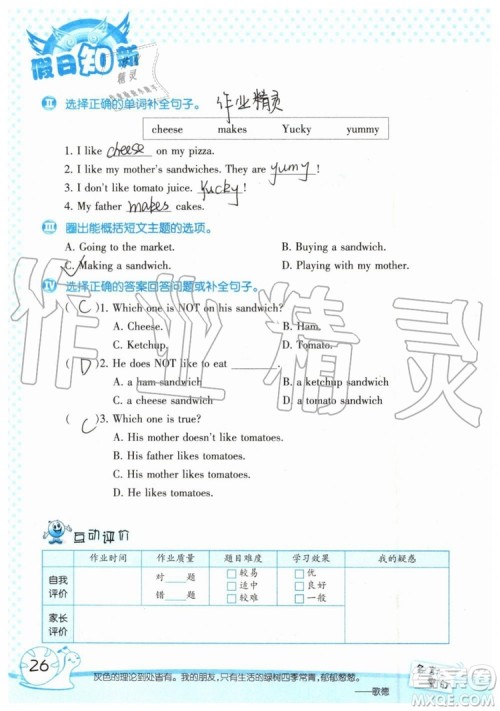 假日知新
精灵
II 选择正确的单词补全句子。 作业精灵
cheese makes Yucky yummy
1. I like cheese on my pizza.
2. I like my mother's sandwiches. They are yumy !
3. I don't like tomato juice. Yucky !
4. My father makes cakes.
III 圈出能概括短文主题的选项。
A. Going to the market. B. Buying a sandwich.
C. Making a sandwich. D. Playing with sandwiches.
IV 选择正确的答案回答问题或补全句子。
( C )1. Which one is NOT on his sandwich?
A. Cheese. B. Ham.
C. Ketchup. D. Tomato.
( D )2. He does NOT like to eat ______.
A. a ham sandwich B. a ketchup sandwich
C. a cheese sandwich D. a tomato sandwich
( C )3. Which one is true?
A. His mother doesn't like tomatoes.
B. His father likes tomatoes.
C. His mother likes tomatoes.
D. He likes tomatoes.
作业精灵
互动评价
作业时间 作业质量 题目难度 学习效果 我的疑惑
自我评价 对____题 错____题 □较易 □适中 □较难 □优 □良好 □一般
家长评价
26
灰色的理论到处皆有。我的朋友,只有生活的绿树四季常青,郁郁葱葱。
——歌德
答案圈
MXQE.COM